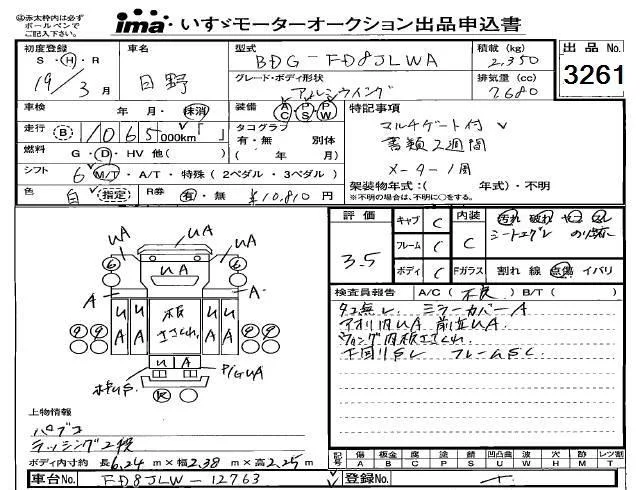 ◎太枠内は必ず
ボールペンで
ご記入下さい。
ima いすゞモーターオークション出品申込書
初度登録
S・H・R
19/3月
車名
日野
型式
BDG-FD8JLWA
グレード・ボディ形状
アルミウイング
積載 (kg)
2,350
排気量 (cc)
7680
出品 No.
3261
車検 年・月・抹消
装備 AC PS PW
走行 B 1065,000km「 」
タコグラフ
有・無 別体
( 年 月)
燃料 G・D・HV 他( )
シフト 6 M/T・A/T・特殊(2ペダル・3ペダル)
色 白 指定 R券 有・無 ¥10,810円
特記事項
マルチゲート付
書類2週間
メーター1周
架装物年式:( 年式)・不明
※不明の場合は、不明に○をする。
評価
3.5
キャブ C
フレーム C
ボディ C
内装 C
汚れ 破れ
シートエグレ
Fガラス 割れ 線 点傷 イバリ
検査員報告 A/C(不良)B/T( )
ミラーカバーA
アオリ内UA
下回りS フレームSC
UA
UA
UA
6
6
A
A
U
UA
U A
P/GUA
上物情報
ラッシング2段
ボディ内寸約 長6.24m×幅2.38m×高2.25m
記号 傷 板金 腐 塗 錆 凹凸曲 波 穴 大 レツ割
A B C P S U W H M T
車台No. FD8JLW-12763
登録No.